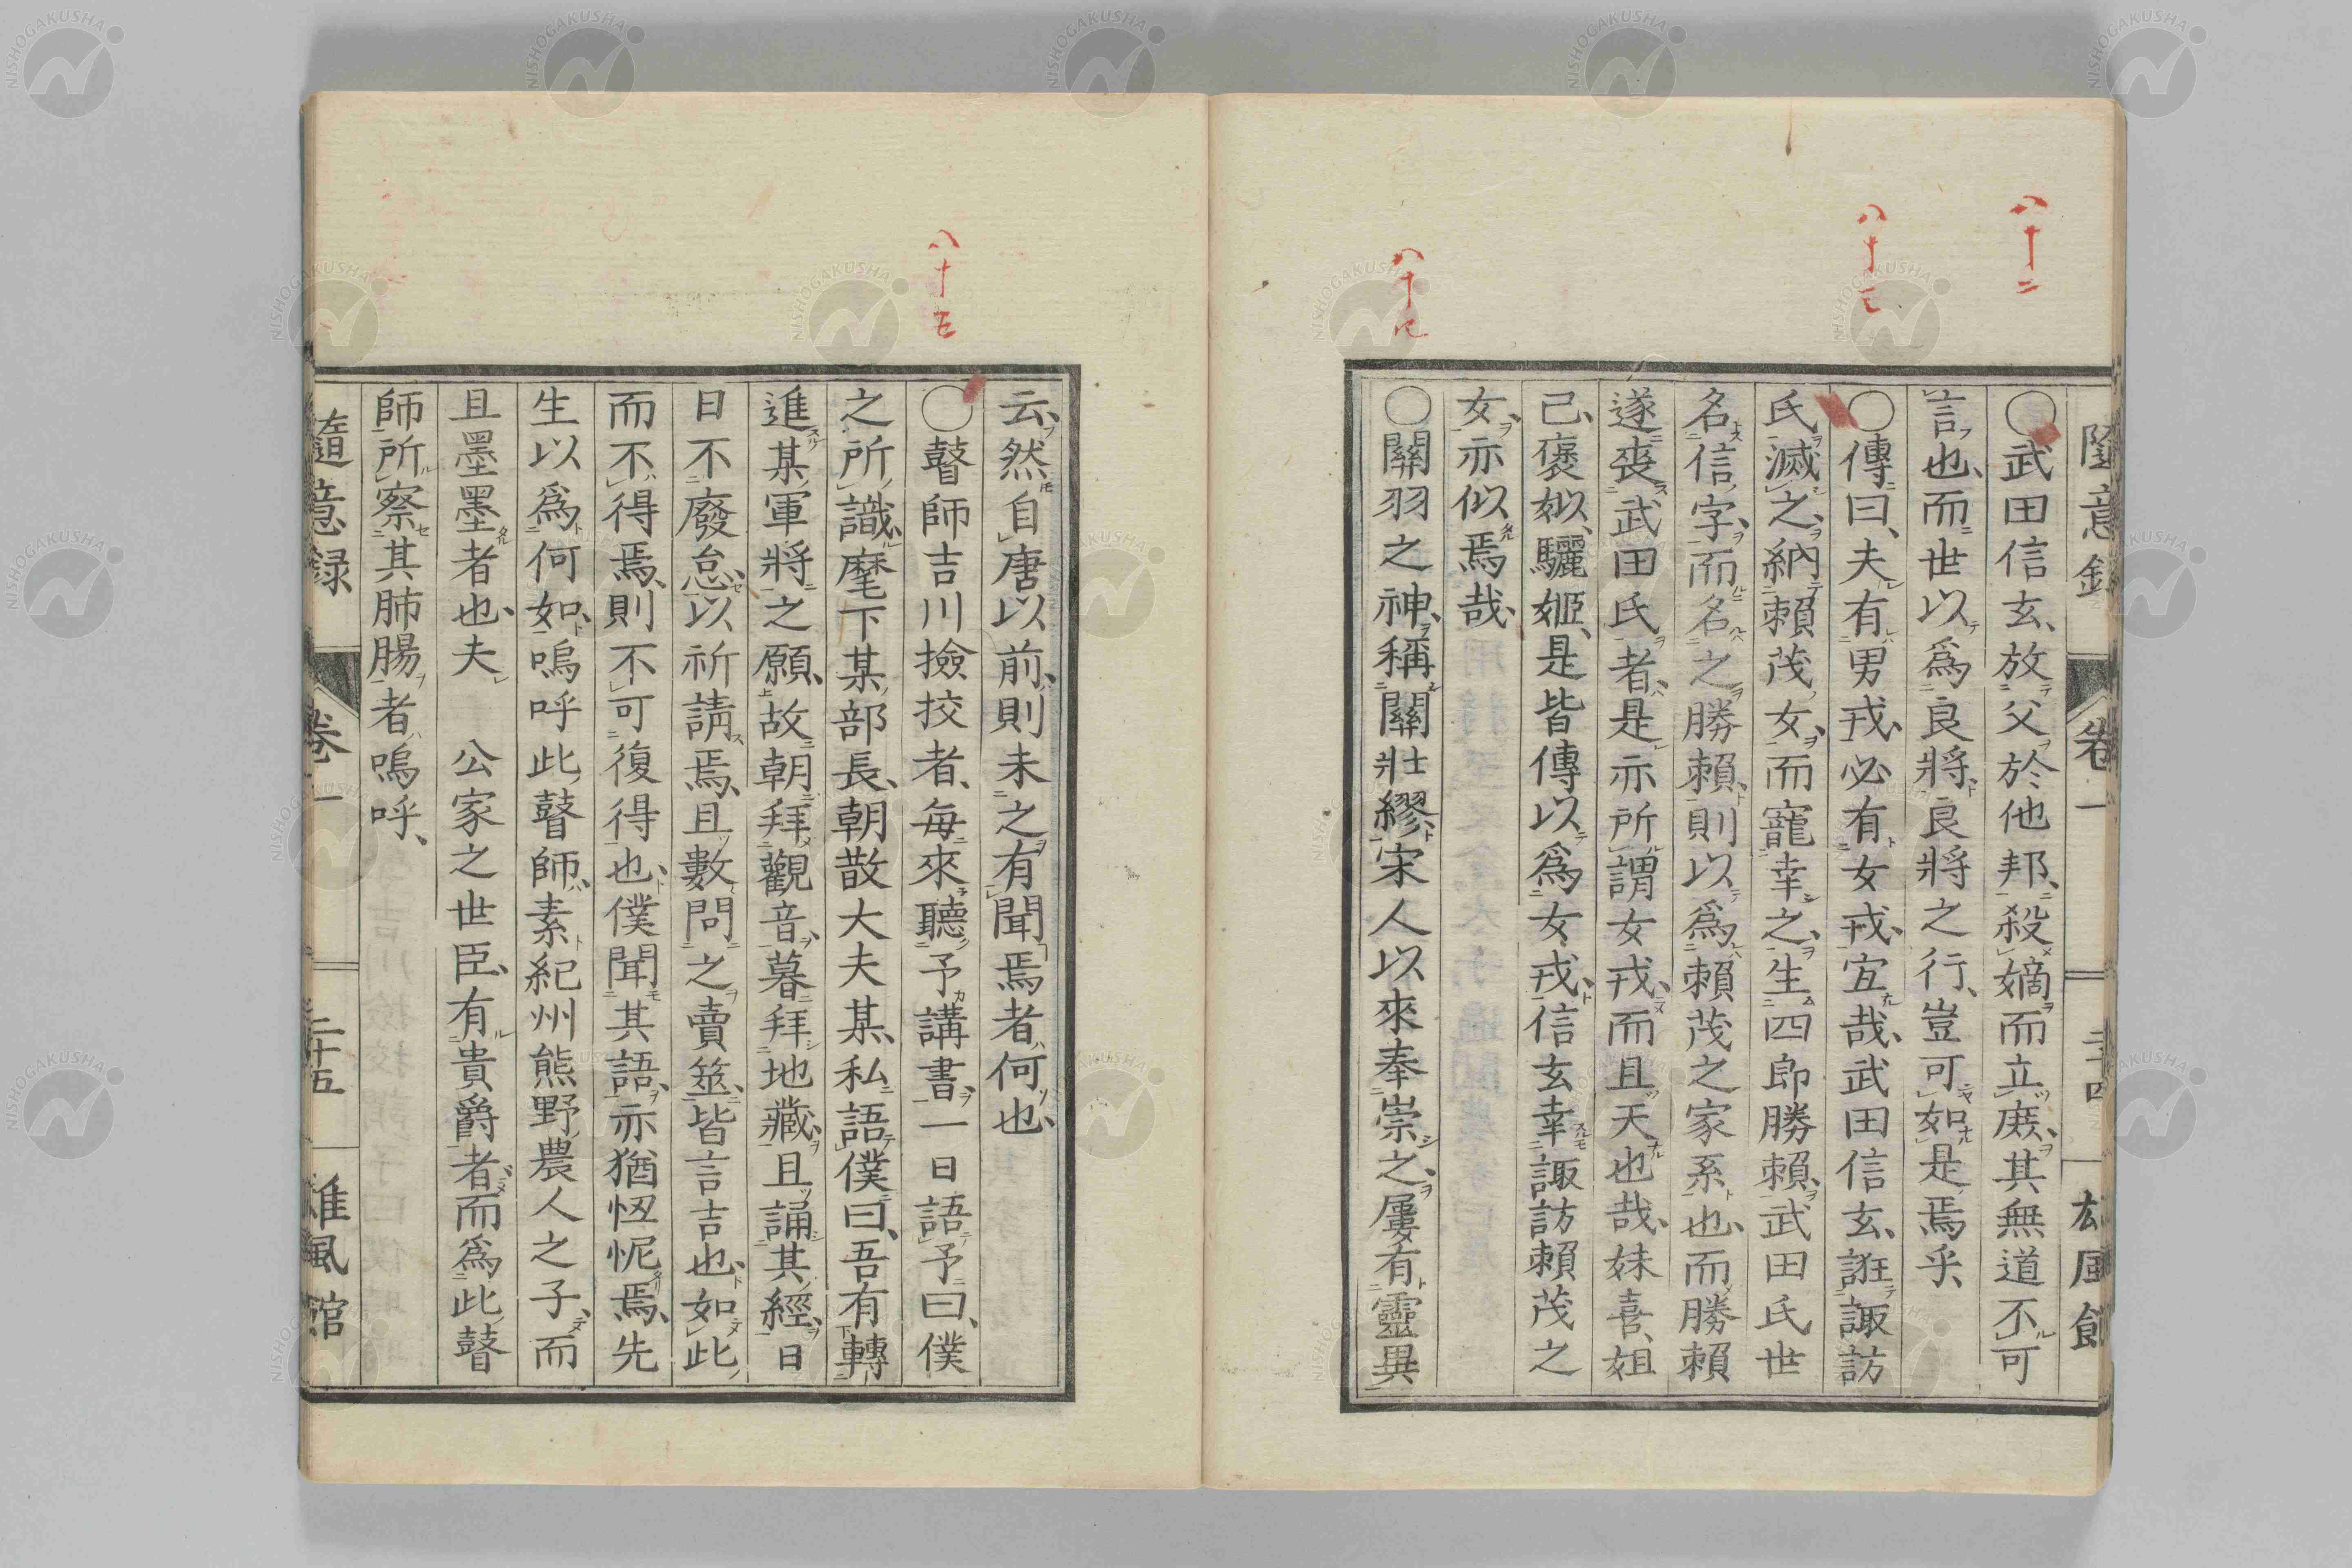 八十二
八十三
八十四
隨意録 卷一 二十四 雄風館
○武田信玄、放父於他邦、殺嫡而立庻、其無道不可
言也、而世以爲良將、良將之行、豈可如是焉乎、
○傳曰、夫有男戎、必有女戎、宜哉、武田信玄、誑諏訪
氏滅之、納賴茂女、而寵幸之、生四郎勝賴、武田氏世
名信字、而名之勝賴、則以爲賴茂之家系也、而勝賴
遂喪武田氏者、是亦所謂女戎、而且天也哉、妹喜、妲
己、褒姒、驪姬、是皆傳以爲女戎、信玄幸諏訪賴茂之
女、亦似焉哉、
○關羽之神、稱關壯繆、宋人以來奉崇之、屢有靈異
八十五
云、然自唐以前、則未之有聞焉者、何也、
○瞽師吉川撿挍者、每來聽予講書、一日語予曰、僕
之所識麾下某部長、朝散大夫某、私語僕曰、吾有轉
進某軍將之願、故朝拜觀音、暮拜地藏、且誦其經、日
日不廢怠、以祈請焉、且數問之賣筮、皆言吉也、如此
而不得焉、則不可復得也、僕聞其語、亦猶忸怩焉、先
生以爲何如、嗚呼此瞽師、素紀州熊野農人之子、而
且墨墨者也、夫 公家之世臣、有貴爵者、而爲此瞽
師所察其肺腸者、嗚呼、
隨意録 卷一 二十五 雄風館